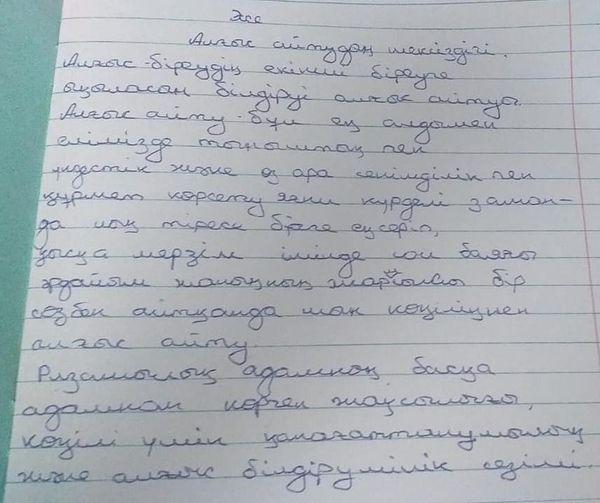 Эссе
Алғыс айтудың шексіздігі.
Алғыс-біреудің екінші біреуге
ықыласын білдіруі алғыс айтуы.
Алғыс айту-бұл ең алдымен
елімізде тыныштық пен
үндестік және өз ара сенімділік пен
құрмет көрсету яғни күрделі заман-
да иық тіресе бірге еңсеріп,
қысқа мерзім ішінде сол баяғы
әрдайым жаныңның жартысы бір
сөзбен айтқанда шын көңіліңнен
алғыс айту.
Ризашылық адамның басқа
адамнан көрген жақсылығы,
көңілі үшін қанағаттанушылық
және алғыс білдірушілік сезімі.